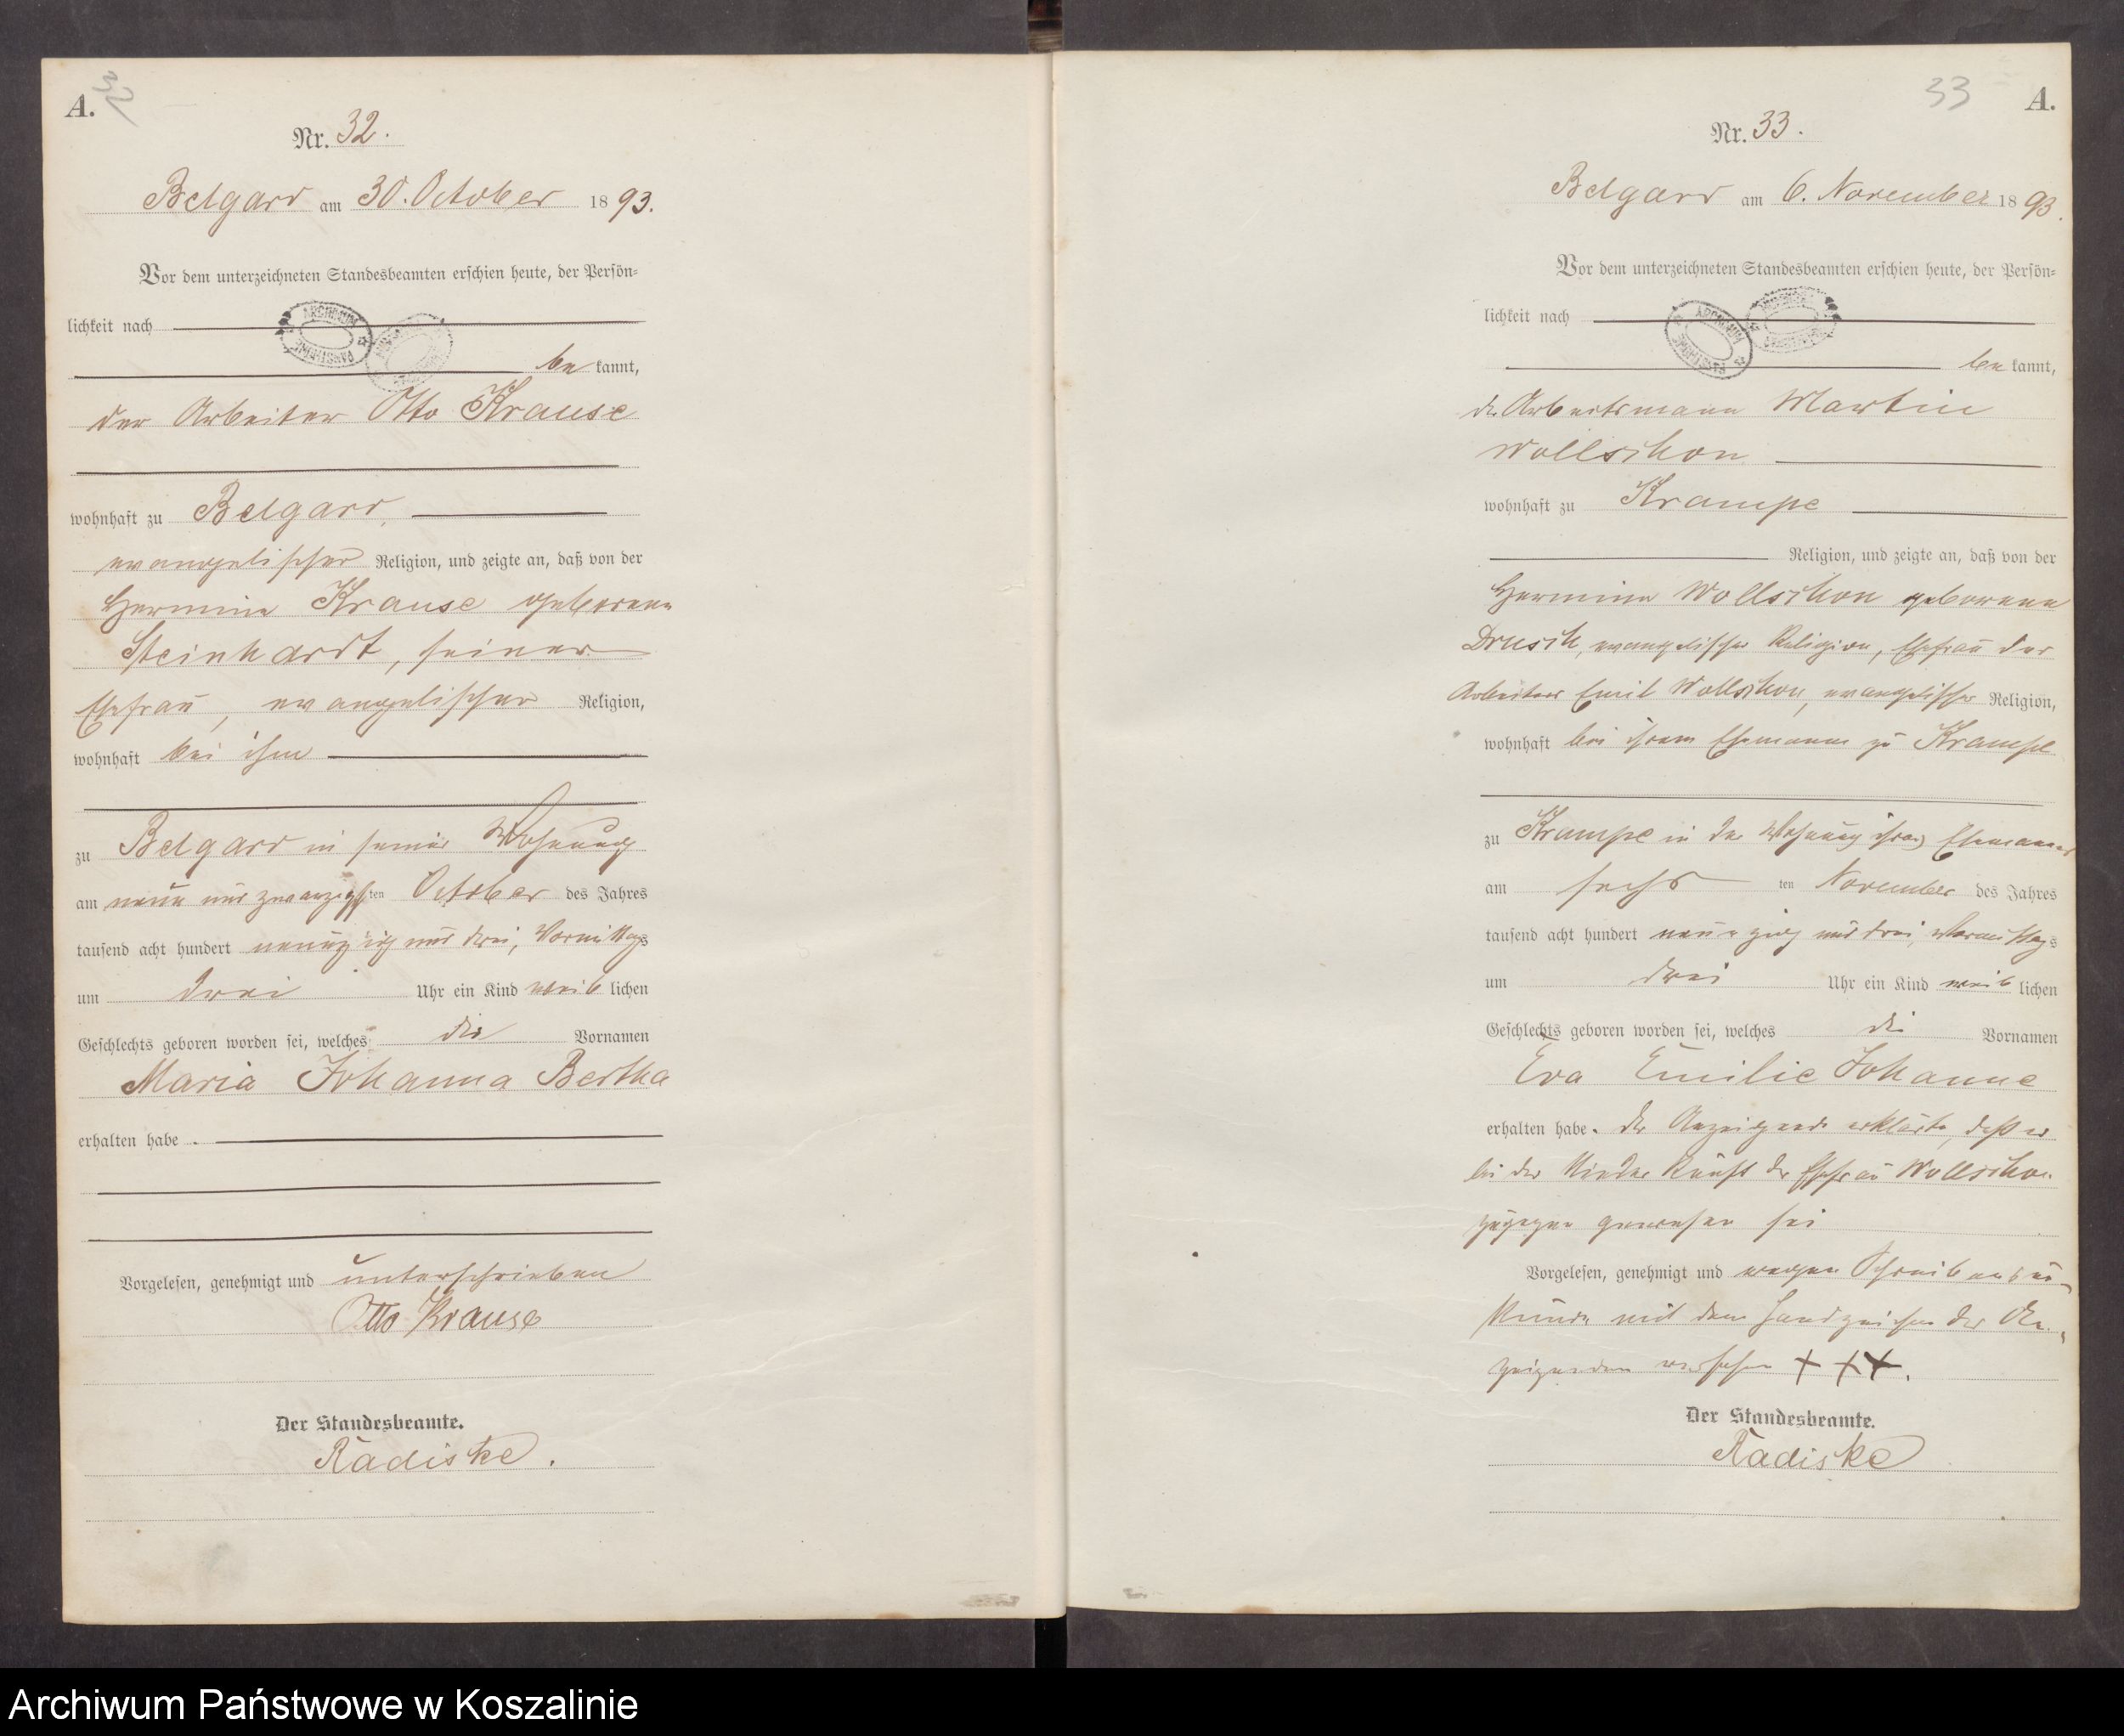 A.
32
Nr. 32.
Belgard am 30. October 1893.
Vor dem unterzeichneten Standesbeamten erschien heute, der Persön-
lichkeit nach
ARCHIWUM PAŃSTWOWE
bekannt,
der Arbeiter Otto Krause
wohnhaft zu Belgard,
evangelischer Religion, und zeigte an, daß von der
Hermine Krause geborenen
Steinhardt, seiner
Ehefrau, evangelischer Religion,
wohnhaft bei ihm
zu Belgard in seiner Wohnung
am neun und zwanzigsten October des Jahres
tausend acht hundert neunzig und drei, Vormittags
um drei Uhr ein Kind weiblichen
Geschlechts geboren worden sei, welches die Vornamen
Maria Johanna Bertha
erhalten habe.
Vorgelesen, genehmigt und unterschrieben
Otto Krause
Der Standesbeamte.
Radiske.
33
A.
Nr. 33.
Belgard am 6. November 1893.
Vor dem unterzeichneten Standesbeamten erschien heute, der Persön-
lichkeit nach
ARCHIWUM PAŃSTWOWE
bekannt,
der Arbeitsmann Martin
Wollschon
wohnhaft zu Krampe
Religion, und zeigte an, daß von der
Hermine Wollschon geborene
evangelischer Religion, Ehefrau des
Arbeiters Emil Wollschon, evangelischer Religion,
wohnhaft bei ihrem Ehemanne zu Krampe
zu Krampe in der Wohnung ihres Ehemannes
am sechsten November des Jahres
tausend acht hundert neunzig und drei, Vormittags
um drei Uhr ein Kind weiblichen
Geschlechts geboren worden sei, welches die Vornamen
Eva Emilie Johanne
erhalten habe. Der Anzeigende erklärte, daß er
bei der Niederkunft der Ehefrau Wollschon
zugegen gewesen sei
Vorgelesen, genehmigt und wegen Schreibensun-
kunde mit dem Handzeichen des An-
zeigenden versehen + + +.
Der Standesbeamte.
Radiske
Archiwum Państwowe w Koszalinie